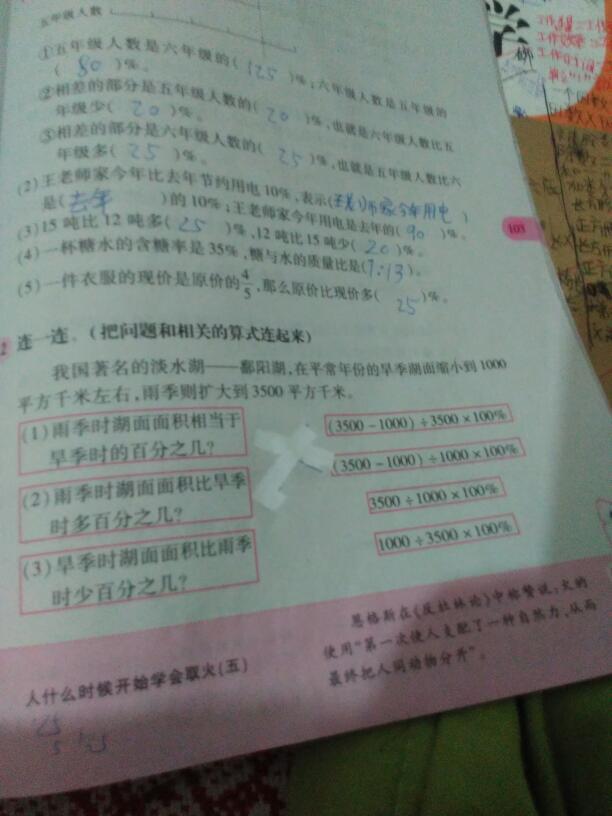 五年级人数
①五年级人数是六年级的( 125 )%;六年级人数是五年级的
( 80 )%。
②相差的部分是五年级人数的( 20 )%,也就是六年级人数比五
年级少( 20 )%。
③相差的部分是六年级人数的( 25 )%,也就是五年级人数比六
年级多( 25 )%。
(2)王老师家今年比去年节约用电10%,表示(王老师家今年用电)
是(去年)的10%;王老师家今年用电是去年的( 90 )%。
(3)15吨比12吨多( 25 )%,12吨比15吨少( 20 )%。
(4)一杯糖水的含糖率是35%,糖与水的质量比是(7:13)。
(5)一件衣服的现价是原价的4/5,那么原价比现价多( 25 )%。
103
2 连一连。(把问题和相关的算式连起来)
我国著名的淡水湖——鄱阳湖,在平常年份的旱季湖面缩小到1000
平方千米左右,雨季则扩大到3500平方千米。
(1)雨季时湖面面积相当于
旱季时的百分之几?
(2)雨季时湖面面积比旱季
时多百分之几?
(3)旱季时湖面面积比雨季
时少百分之几?
(3500-1000)÷3500×100%
(3500-1000)÷1000×100%
3500÷1000×100%
1000÷3500×100%
人什么时候开始学会取火(五)
恩格斯在《反杜林论》中称赞说:火的
使用“第一次使人支配了一种自然力,从而
最终把人同动物分开”。
学